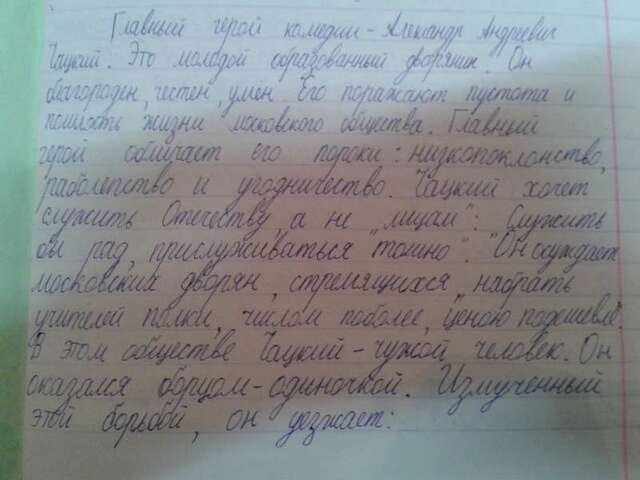 Главный герой комедии - Александр Андреевич
Чацкий. Это молодой образованный дворянин. Он
благороден, честен, умен. Его поражают пустота и
пошлость жизни московского общества. Главный
герой обличает его пороки: низкопоклонство,
раболепство и угодничество. Чацкий хочет
служить Отечеству, а не „лицам": „Служить
бы рад, прислуживаться тошно". Он осуждает
московских дворян, стремящихся „набрать
учителей полки, числом поболее, ценою подешевле".
В этом обществе Чацкий - чужой человек. Он
оказался борцом-одиночкой. Измученный
этой борьбой, он уезжает: